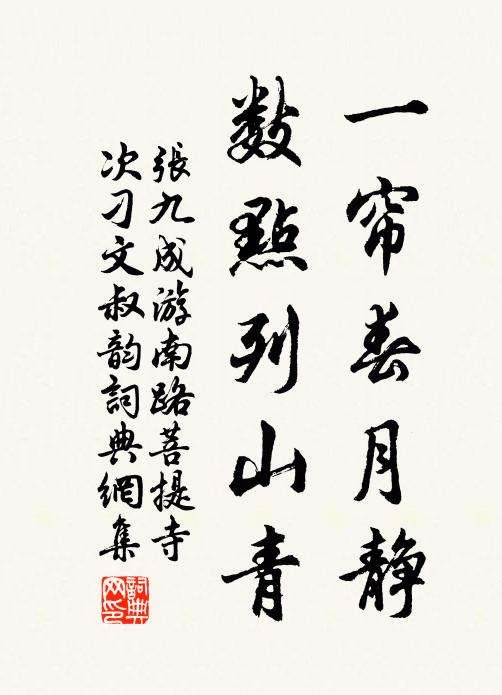 一帘春月静
数點列山青
張九成游南路菩提寺
次刁文叔韵詞典網集
詞典
网印